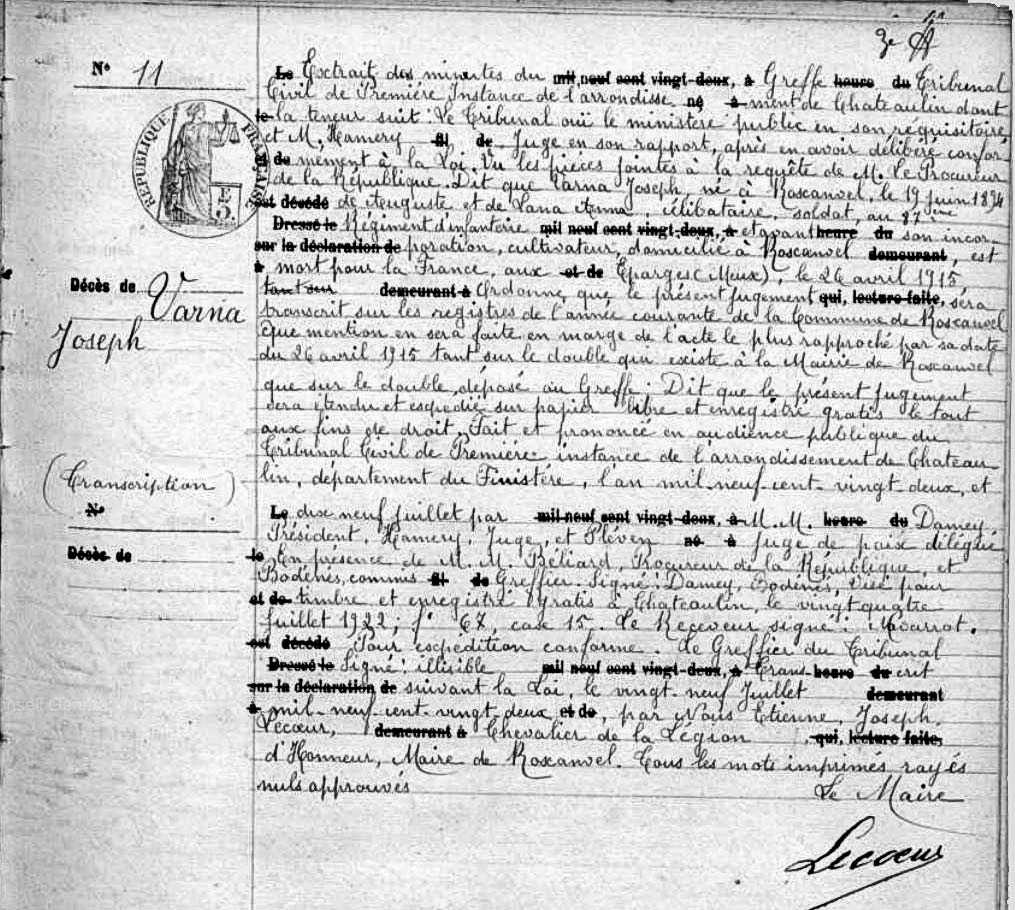 3e A
N° 11
RÉPUBLIQUE FRANÇAISE
Décès de Varna
Joseph
(Transcription)
N°
Décès de
Le Extrait des minutes du mil neuf cent vingt-deux, à Greffe heure du Tribunal
Civil de Première Instance de l'arrondisse né à ment de Chateaulin dont
le la teneur suit: Le Tribunal ouï le ministère public en son réquisitoire
et M. Hamery fil de Juge en son rapport, après en avoir délibéré confor
et de mément à la Loi. Vu les pièces jointes à la requête de M. Le Procureur
de la République. Dit que Varna Joseph, né à Roscanvel, le 19 juin 1894
est décédé de Auguste et de Lana Anna, célibataire, soldat, au 87ème
Dressé le Régiment d'infanterie mil neuf cent vingt-deux, à et avant heure du son incor-
sur la déclaration de poration, cultivateur, domicilié à Roscanvel demeurant, est
à mort pour la France, aux et de Eparges (Meux), le 26 avril 1915
demeurant à Ordonne que le présent jugement qui, lecture faite, sera
transcrit sur les registres de l'année courante de la Commune de Roscanvel
Que mention en sera faite en marge de l'acte le plus rapproché par sa date
du 26 avril 1915 tant sur le double qui existe à la Mairie de Roscanvel
que sur le double déposé au Greffe. Dit que le présent jugement
sera étendu et expédié sur papier libre et enregistré gratis le tout
aux fins de droit. Fait et prononcé en audience publique du
Tribunal Civil de Première instance de l'arrondissement de Chateau-
lin, département du Finistère, l'an mil-neuf-cent-vingt deux, et
Le dix neuf juillet par mil neuf cent vingt-deux, à M.M. heure du Damey,
Président, Hamery, Juge, et Pléven né à Juge de paix délégué
le En présence de M. M. Béliard, Procureur de la République, et
Bodénès, commis fil de Greffier. Signé: Damey, Bodénès, Visé pour
et de timbre et enregistré gratis à Chateaulin, le vingt quatre
juillet 1922; f° 67, case 15. Le Receveur signé:
est décédé Pour expédition conforme. Le Greffier du Tribunal
Dressé le Signé: illisible mil neuf cent vingt-deux, à Trans- heure du crit
sur la déclaration de suivant la Loi, le vingt-neuf Juillet demeurant
à mil-neuf-cent-vingt deux et de, par Nous Etienne, Joseph,
Lecœur, demeurant à Chevalier de la Légion qui, lecture faite,
d'Honneur, Maire de Roscanvel. Tous les mots imprimés rayés
nuls approuvés
Le Maire
Lecœur